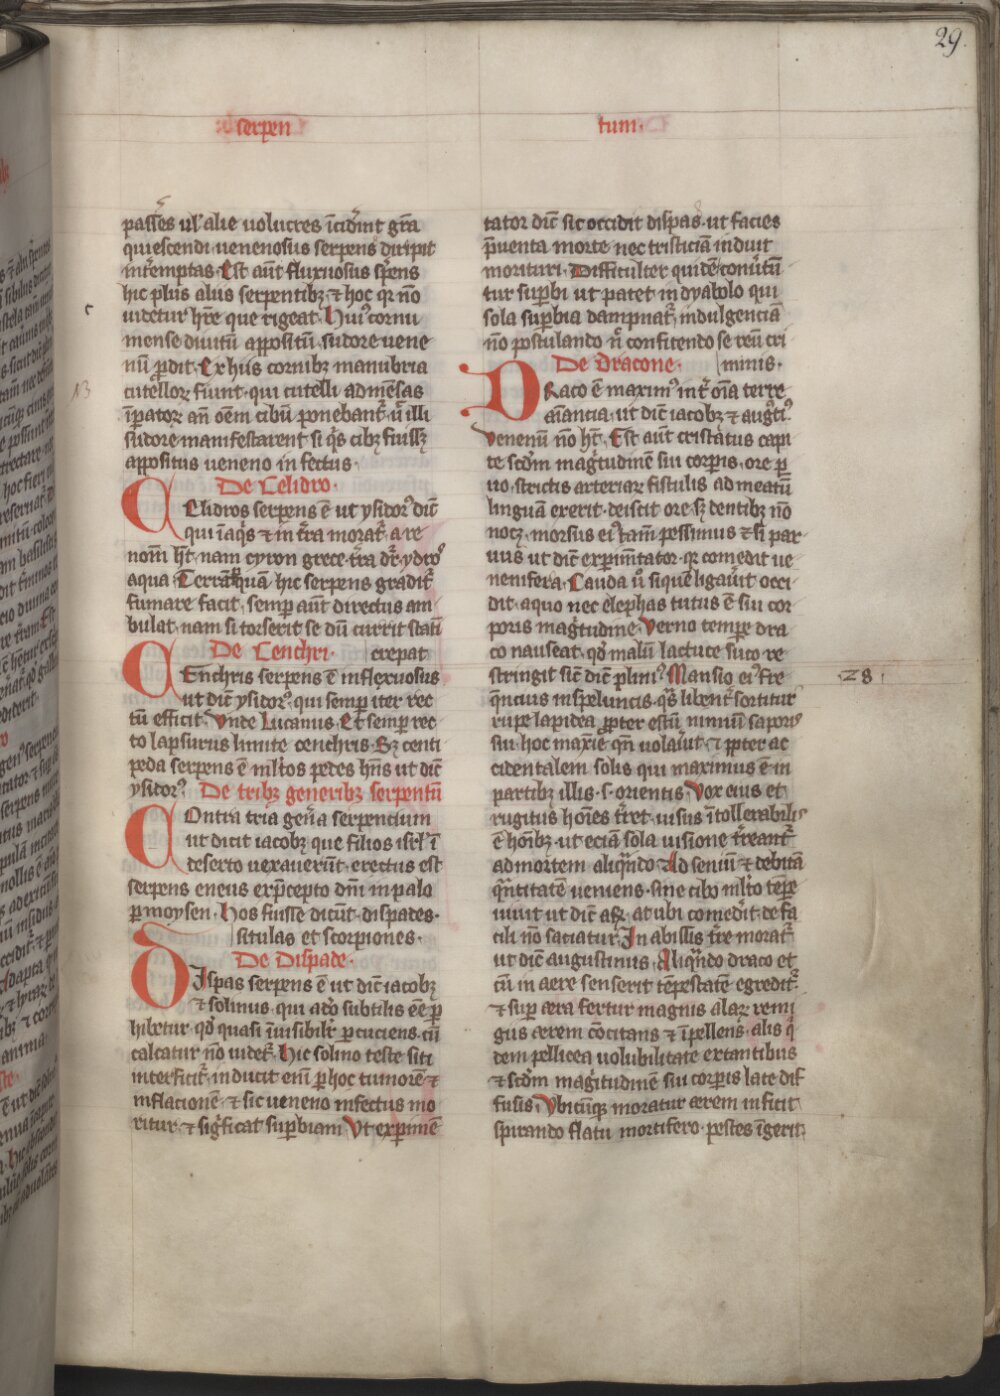 29.
serpen
tum.
passes ul' alie uolucres īcidunt gr̄a
quiescendi. uenenosus serpens diripit
int̄emptas. Est aūt fluxuosus sp̄ens
hic plus aliis serpentibꝫ ⁊ hoc qꝛ nō
uidetur hr̄e que rigeat. Huiꝰ cornu
mense diuitū appositū. sudore uene
nū ꝓdit. Ex hiis cornibꝫ manubria
cutelloꝝ fiunt. qui cutelli ad mēsas
īꝑatoꝝ an̄ oēm cibū ponebant᷑. ut illi
sudore manifestarent si q̄s cibꝫ fuissꝫ
appositus ueneno infectus.
De Celidro.
CElidros serpens ē ut ysidorꝰ dic̄t
qui ī aq̄s ⁊ in t̄ra morat᷑. a re
nom̄ hꝫt. nam cyron grece. t̄ra dr̄. ydrꝰ
aqua. Terrā quā hic serpens gradit᷑
fumare facit. semꝑ aūt directus am
bulat. nam si torserit se dū currit statī
De Cenchri. crepat.
CEnchris serpens ē inflexuosus
ut dic̄t ysidorꝰ. qui semꝑ iter rec
tū efficit. Unde Lucanus. Et semꝑ rec
to lapsurus limite cenchris. Sꝫ centi
peda serpens ē ml̄tos pedes hn̄s ut dic̄t
ysidorꝰ. De tribꝫ generibꝫ serpentū
COntra tria gen̄a serpentium
ut dicit iacobꝫ que filios isrl' ī
deserto uexauerūt. erectus est
serpens eneus ex p̄cepto dn̄i in palo
ꝑ moysen. Hos fuisse dicūt. dispades.
situlas et scorpiones.
De Dispade.
DIspas serpens ē ut dic̄t iacobꝫ
⁊ solinus. qui adō subtilis ēē ꝑ
hibetur. qd̄ quasi īuisibilr̄ ꝑcuciens. cū
calcatur nō uidet᷑. Hic solino teste siti
interficit᷑. inducit eni ꝑ hoc tumorē ⁊
inflacionē. ⁊ sic ueneno infectus mo
ritur. ⁊ sig̅ficat suꝑbiam. Ut exꝑimē
tator dic̄t sic occidit dispas. ut facies
p̄uenta morte nec tristiciā induit
morituri. Difficulter quidē conūtū
tur suꝑbi ut patet in dyabolo qui
sola suꝑbia dampnat᷑. indulgenciā
nō postulando. n̄ confitendo se reū cri
De Dracone. minis.
DRaco ē maximꝰ int̄ oīa terre
aīancia. ut dic̄t iacobꝫ ⁊ augꝰtiꝰ.
Venenū nō hꝫt. Est aūt cristatus capi
te scd̄m mag̅tudinē sui corꝑis. ore ꝑ
uo. strictis arteriaꝝ fistulis ad meatū
linguā exerit. deicit ore sꝫ dentibꝫ nō
nocꝫ. morsus eiꝰ tam̄ pessimus ⁊ si par
uus ut dic̄t exꝑim̄tator. qꝛ comedit ue
nenifera. Cauda ū si quē ligaūit occi
dit. a quo nec elephas tutus ē sui cor
poris mag̅tudine. Verno temꝑe dra
co nauseat. qd̄ malū lactuce suco re
stringit sic̄t dic̄t pliniꝰ. Mansio eiꝰ fre
quēcius in speluncis. q̄s libent᷑ sortitur
rupe lapidea ꝓpter estū nimiū saporis
sui hoc maxīe qn̄ uolaūit. ⁊ ꝓpter ac
cidentalem solis qui maximus ē in
partibꝫ illis. s. orientis. Vox eius et
rugitus hoīes t̄ret. uisus ītollerabilis
ē hoībꝫ. ut eciam sola uisione t̄reant᷑
ad mortem aliqn̄do. Ad seniū ⁊ debitā
qn̄titatē ueniens. sine cibo ml̄to tēꝑe
uiuit ut dic̄t aꝝ. at ubi comed̄it. de fa
cili nō saciatur. In abissis t̄re morat᷑
ut dic̄t augustinus. Aliqn̄do draco et
cū in aere senserit tēpestatē egredit᷑.
⁊ suꝑ aera fertur magnis alaꝝ remi
gus aerem cōcitans ⁊ īpellens. alis q̄
dem pellicea uolubilitate extantibus
⁊ scd̄m mag̅tudinē sui corꝑis late dif
fusis. Ubicūqꝫ moratur aerem inficit
spirando flatu mortifero. pestes īgerit
28